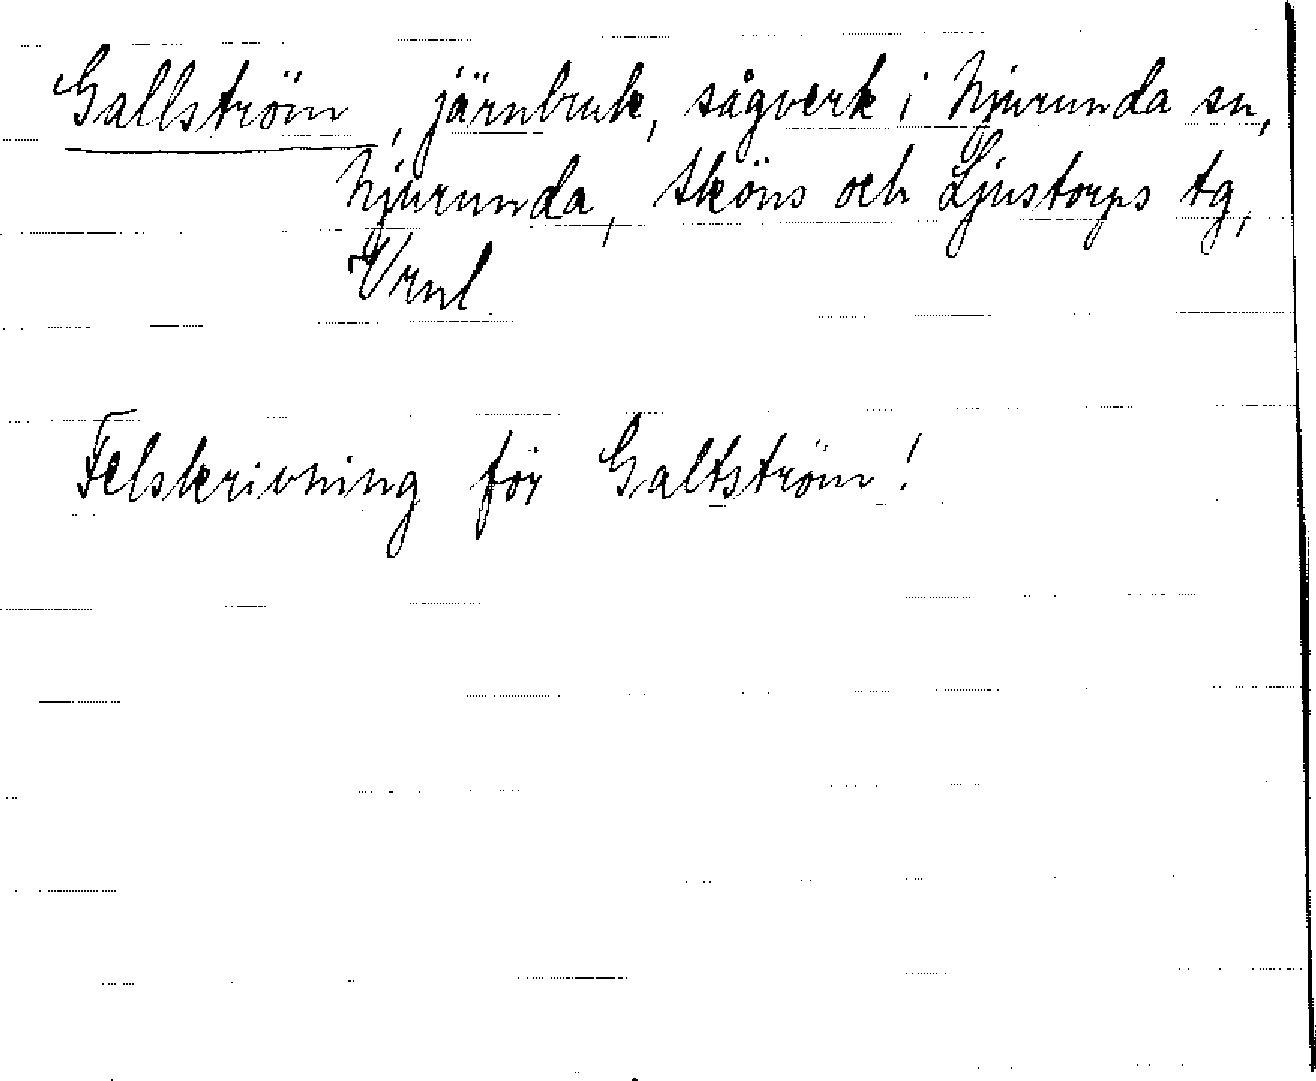 Gallström, järnbruk, sågverk i Njurunda sn,
Njurunda, Sköns och Ljustorps tg,
Vrnl.
Felskrivning för Galtström!